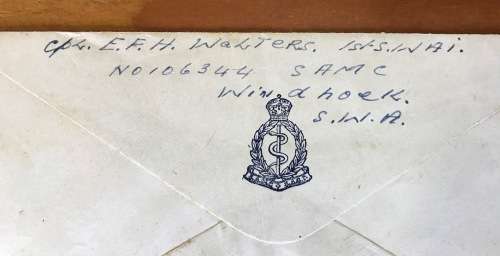 Cpl. E.F.H. Walters. 1st S.W.A.i.
No 106344 SAMC
Windhoek.
S.W.A.